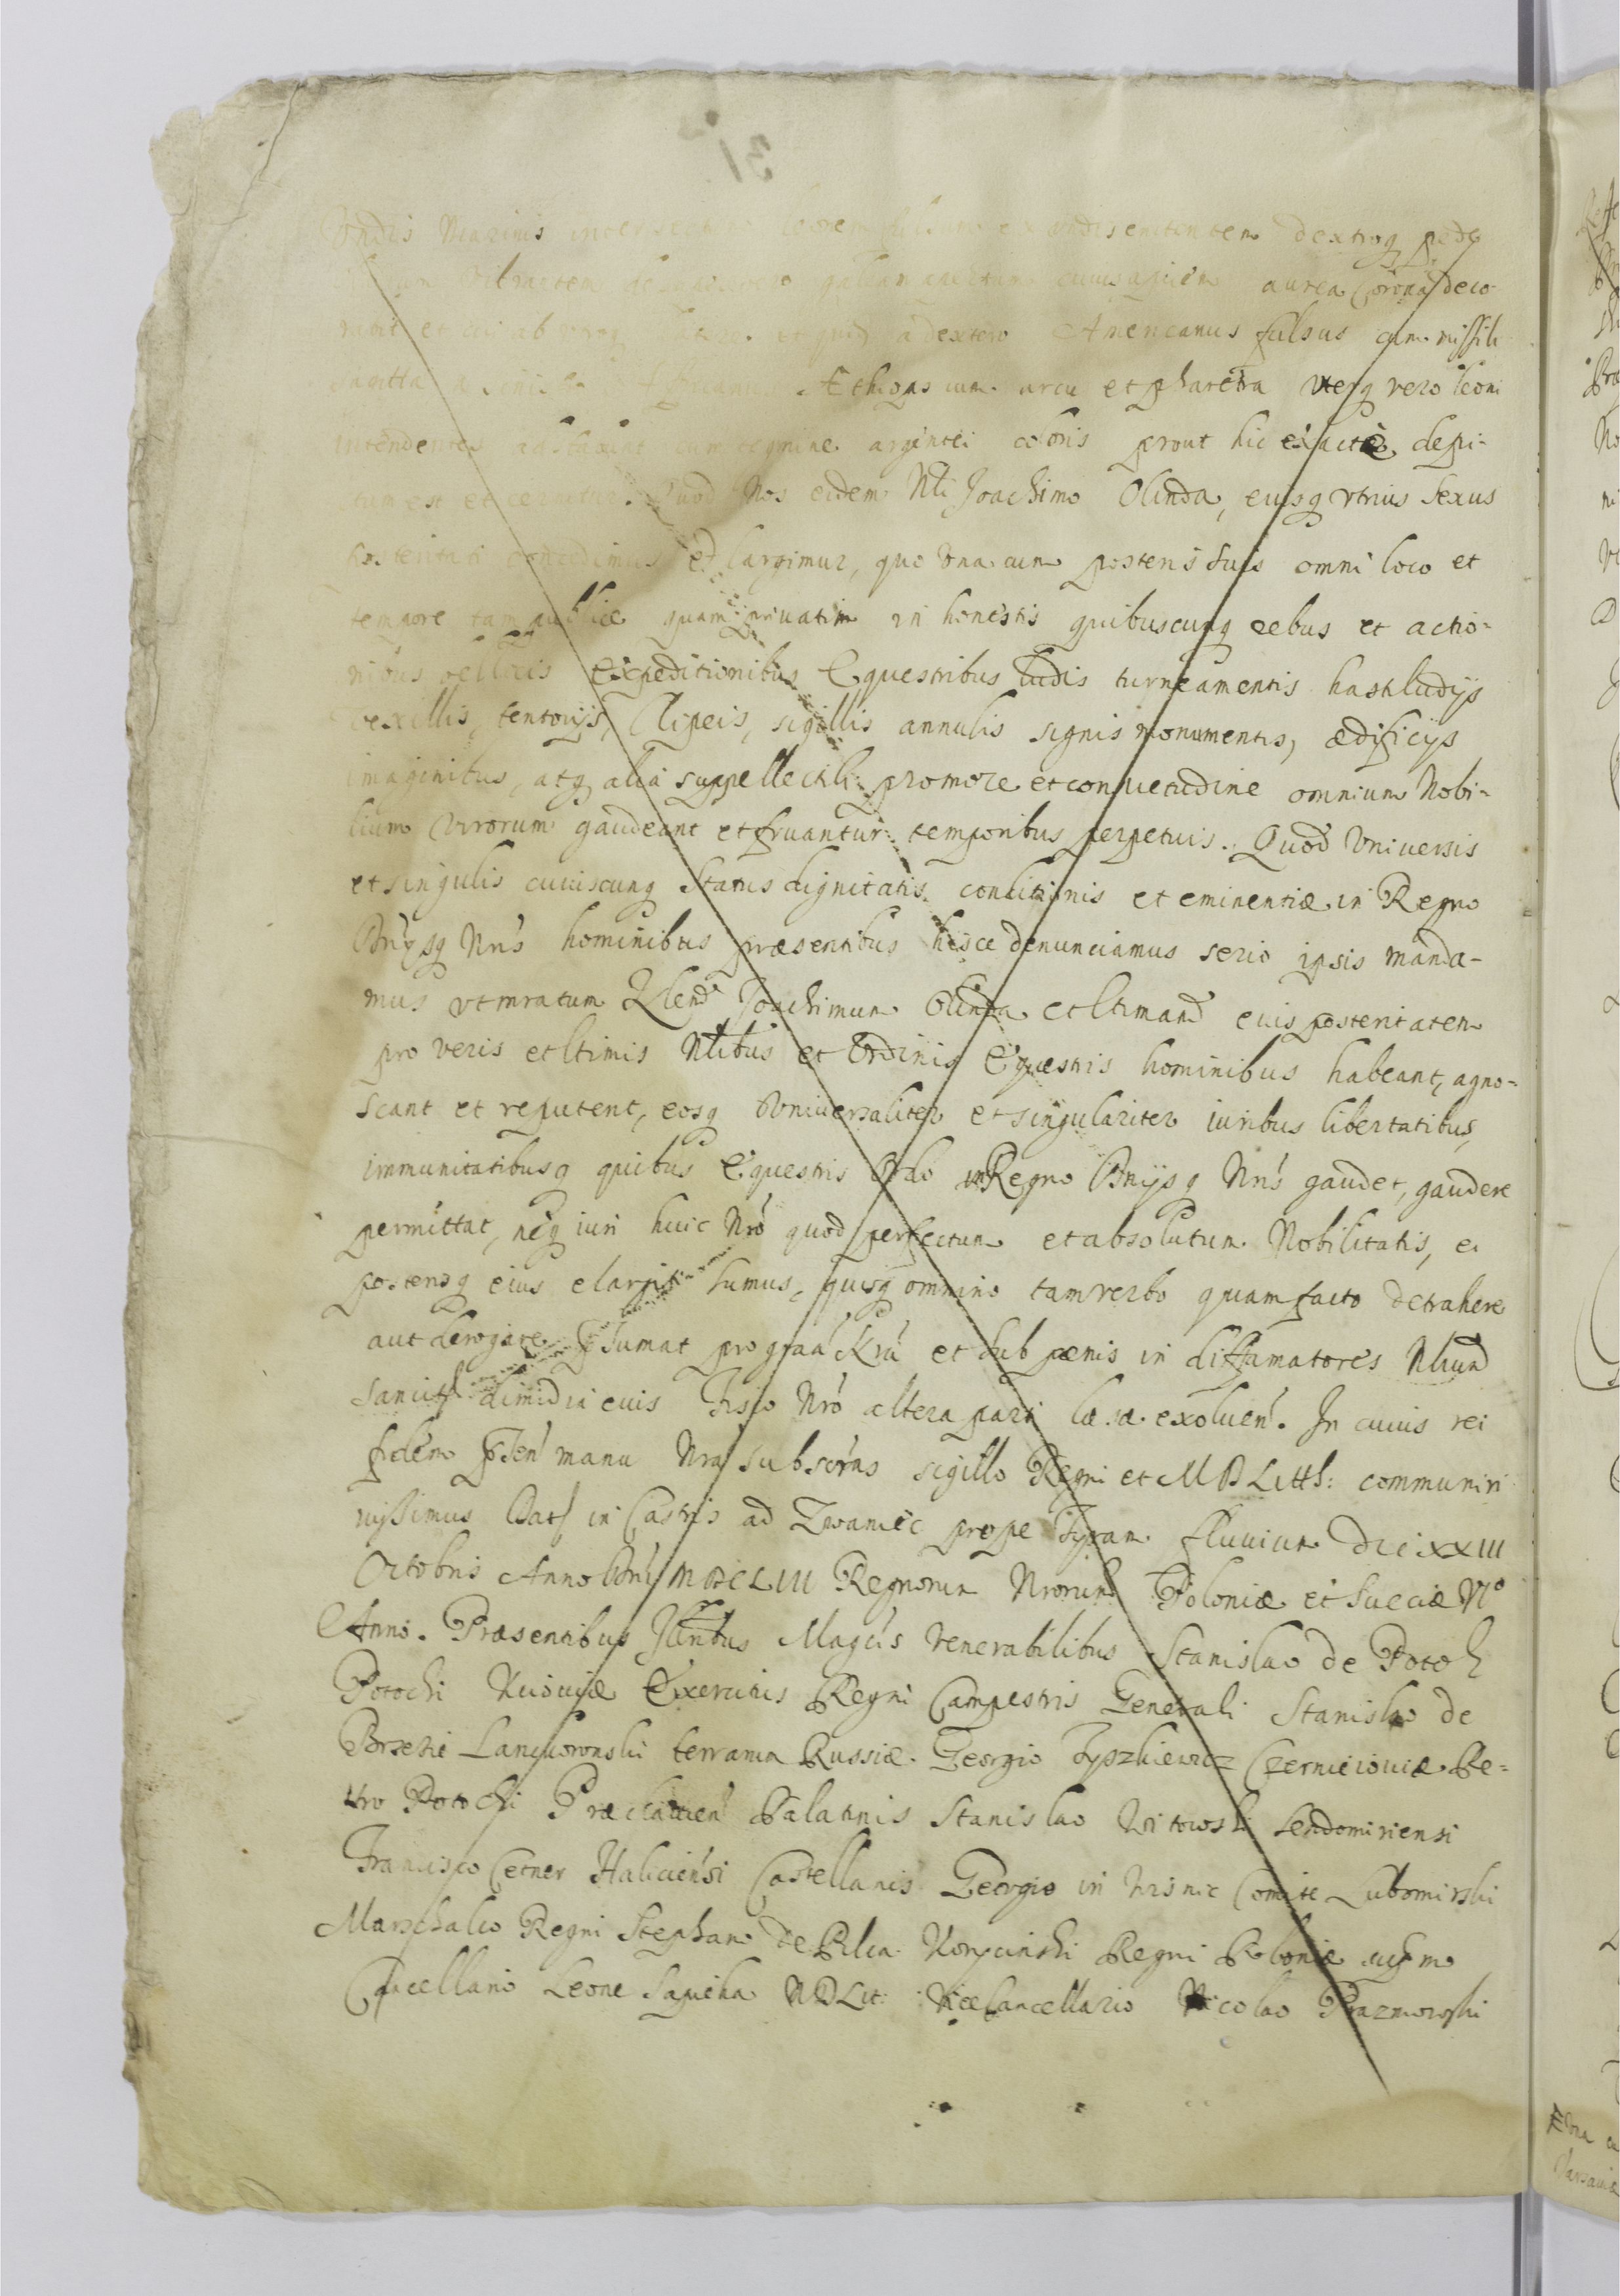 Undis Marinis leonem ex undis enitentem dextroq pede
aurea Corona deco
et ab a dextero Americanus fulsus cum missili
sagitta a Æthiops cum arcu et pharetra uterq vero leoni
intendentes cum tegmine argentei coloris prout hic exactè depi-
tum est et cernitur. Quod Nos eidem Nli Joachimo Olinda, eiusq utrius Sexus
posteritati concedimus et largimur, quo una cum posteris suis omni loco et
tempore tam publice quam priuatim in honestis quibuscunq rebus et actio-
nibus bellicis expeditionibus Equestribus ludis turneamentis hastiludijs
vexillis, tentorijs, Clipeis, sigillis annulis signis monumentis, ædificijs
imaginibus, atq alia suppellectili pro more et consuetudine omnium Nobi-
lium Virorum gaudeant et fruantur temporibus perpetuis. Quod Universis
et singulis cuiuscunq Status dignitatis conditionis et eminentiæ in Regno
Dnijsq Nris hominibus præsentibus hisce denunciamus serio ipsis manda-
mus ut mratum Joachimum Olinda et ltimam eius posteritatem
pro veris et ltimis Nlibus et Ordinis Equestris hominibus habeant, agno-
scant et reputent, eosq Universaliter et singulariter iuribus libertatibus,
immunitatibusq quibus Equestris Ordo in Regno Dnijsq Nris gaudet, gaudere
permittat, neq iuri huic Nro quod perfectum et absolutum Nobilitatis, ei
posterisq eius elargiti sumus, quisq omnino tam verbo quam facto detrahere
aut derogare psumat pro graa Nra et sub pœnis in diffamatores Nlium
sancitis dimidia euis Fisco Nro altera parti læsæ exoluen. In cuius rei
fidem psen manu Nra subscrns sigillo Regni et M D Litth: communiri
iussimus Dat in Castris ad Zwaniec prope Tyram fluvium Die XXIII
Octobris Anno Dni MDCLIII Regnorum Nrorum Poloniæ et Sueciæ V°
Anno. Præsentibus Illribus Magcis Venerabilibus Stanislao de Potok
Potocki Kijouiæ Exercitus Regni Campestris Generali Stanislao de
Brzezie Lanckoronski terrarum Russiæ. Georgio Tyszkiewicz Czernieiouiæ Pe-
tro Potocki Præclauien Palatinis Stanislao Witowski Sendomiriensi
Francisco Cetner Haliciensi Castellanis Georgio in Wisnic Comite Lubomirski
Marschalco Regni Stephano de Pilca Korycinski Regni Poloniæ supmo
Cancellario Leone Sapieha MDLit: ViceCancellario Nicolao Prazmowski